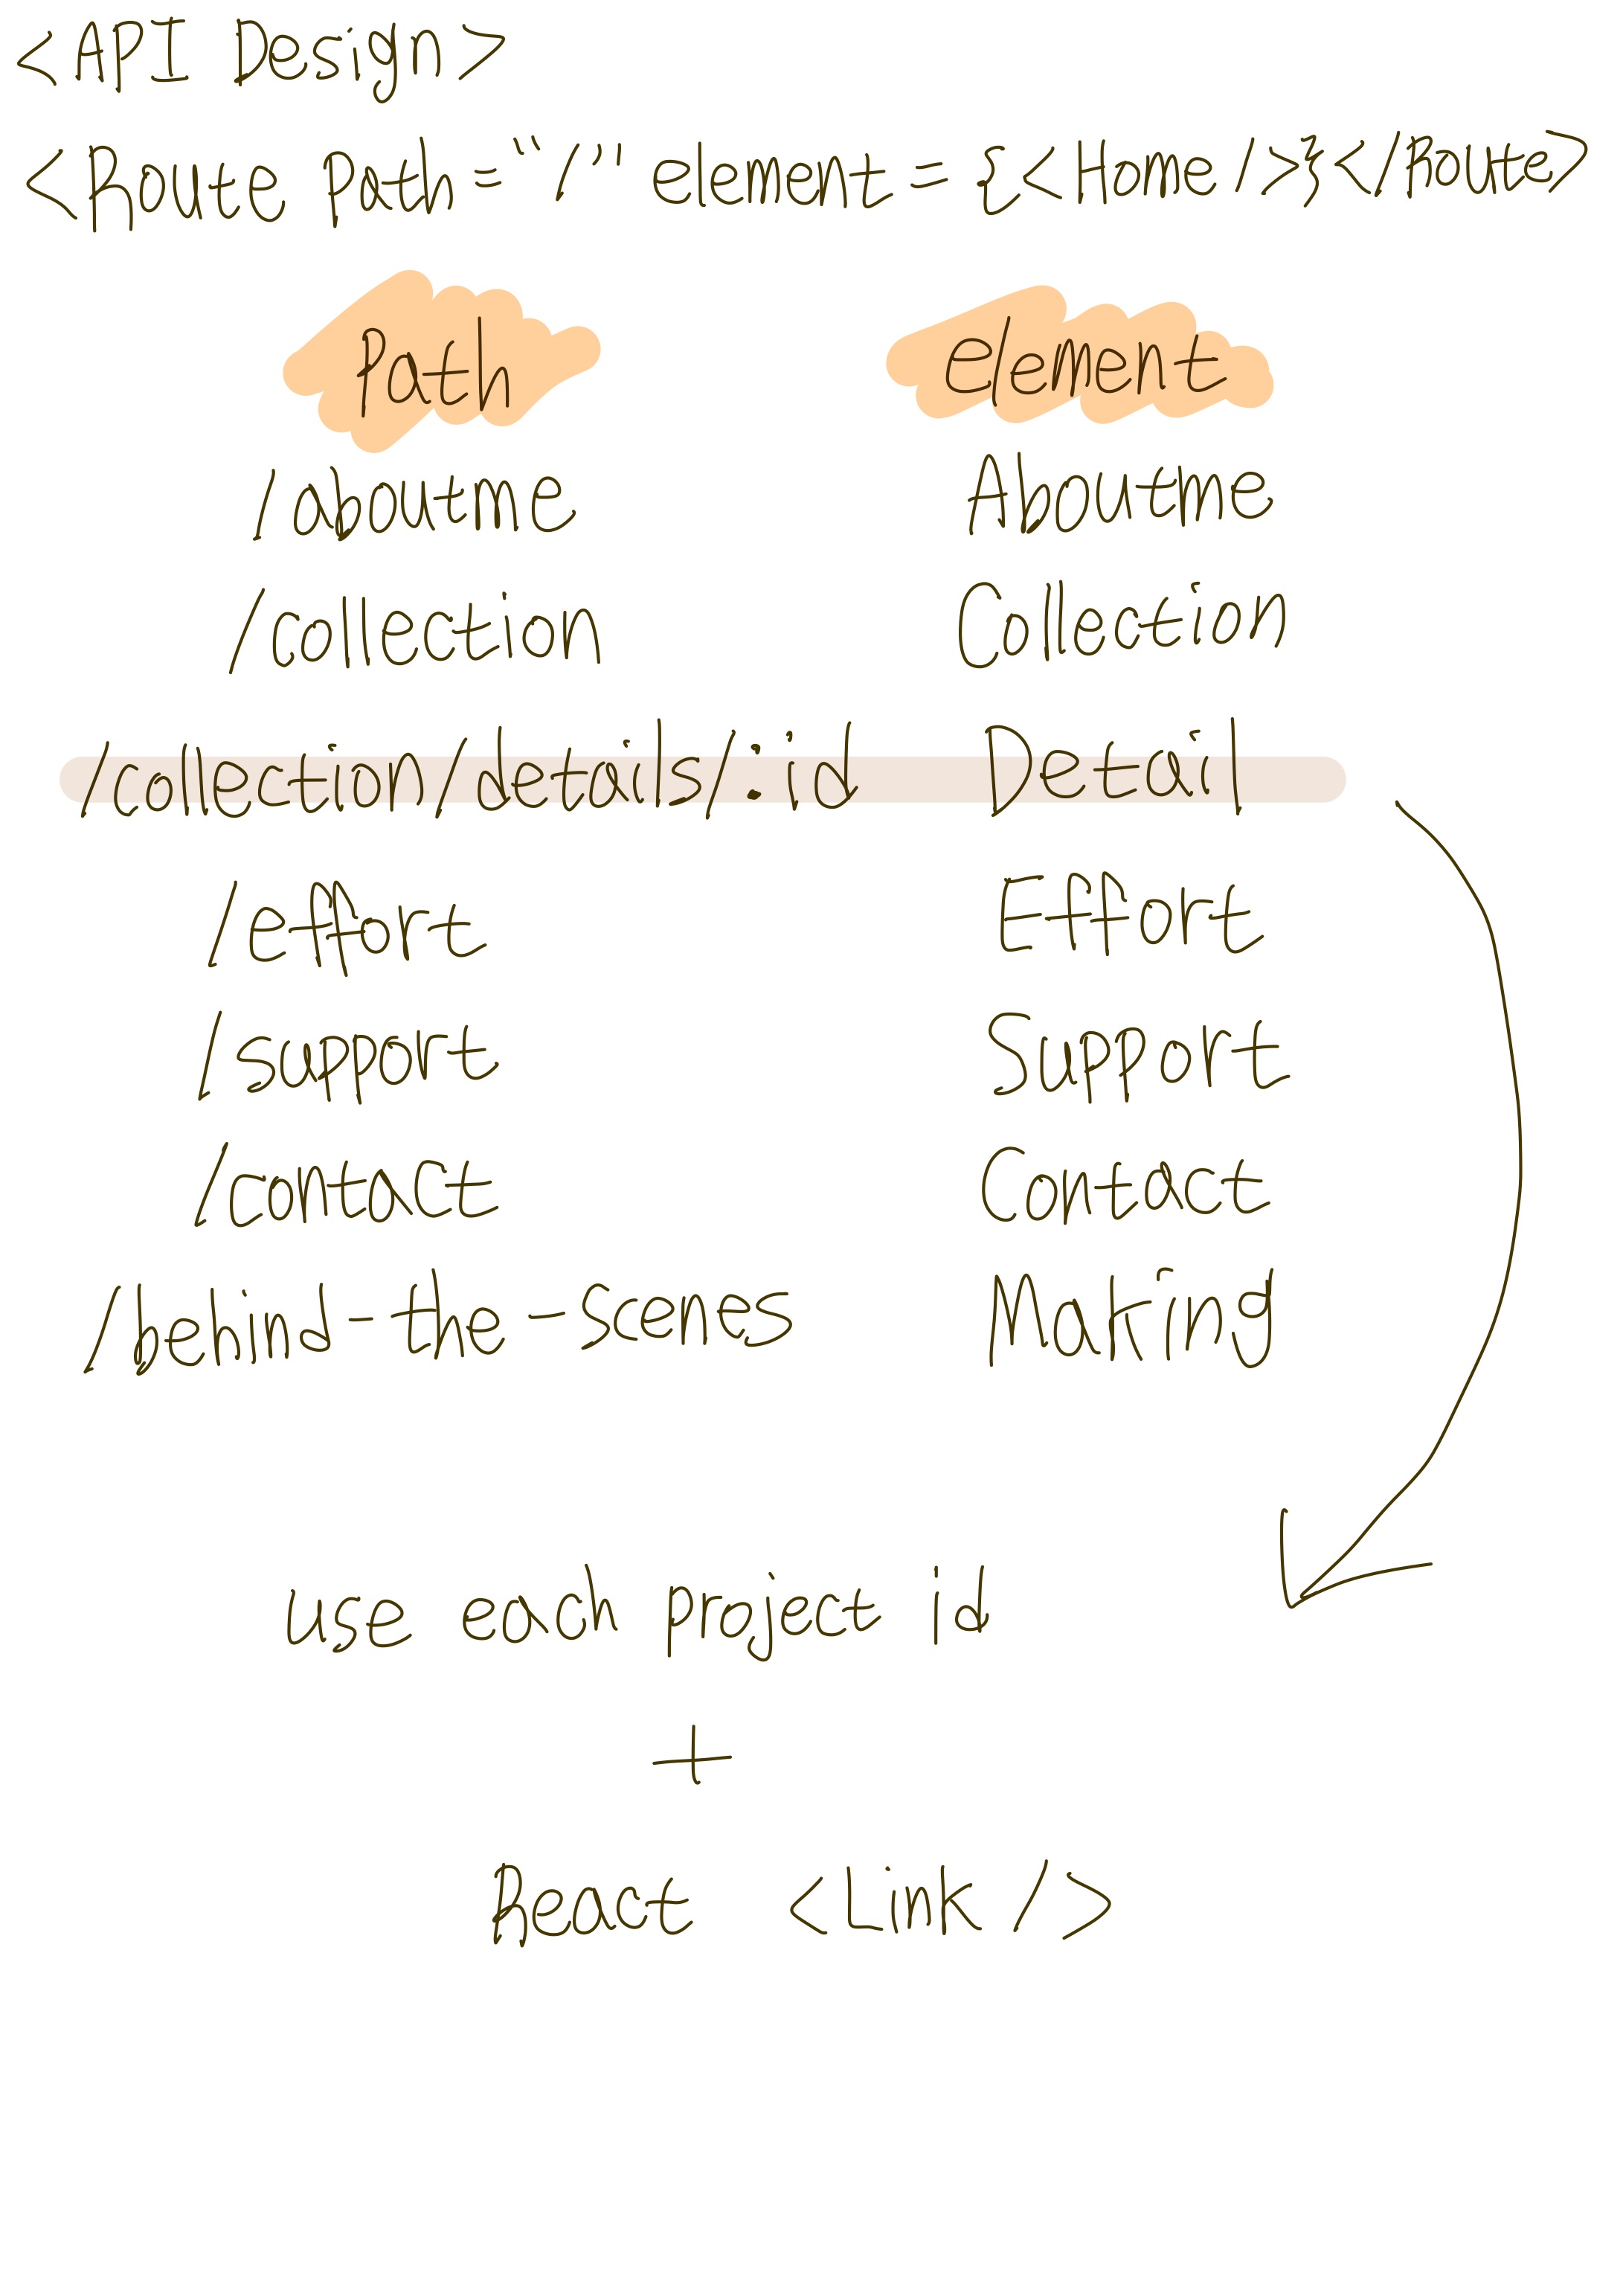 <API Design>
<Route Path="/" element={<Home/>}</Route>
Path element
/aboutme Aboutme
/collection Collection
/collection/details/:id Detail
/effort Effort
/support Support
/contact Contact
/behind-the-scenes Making
use each project id
+
React <Link />